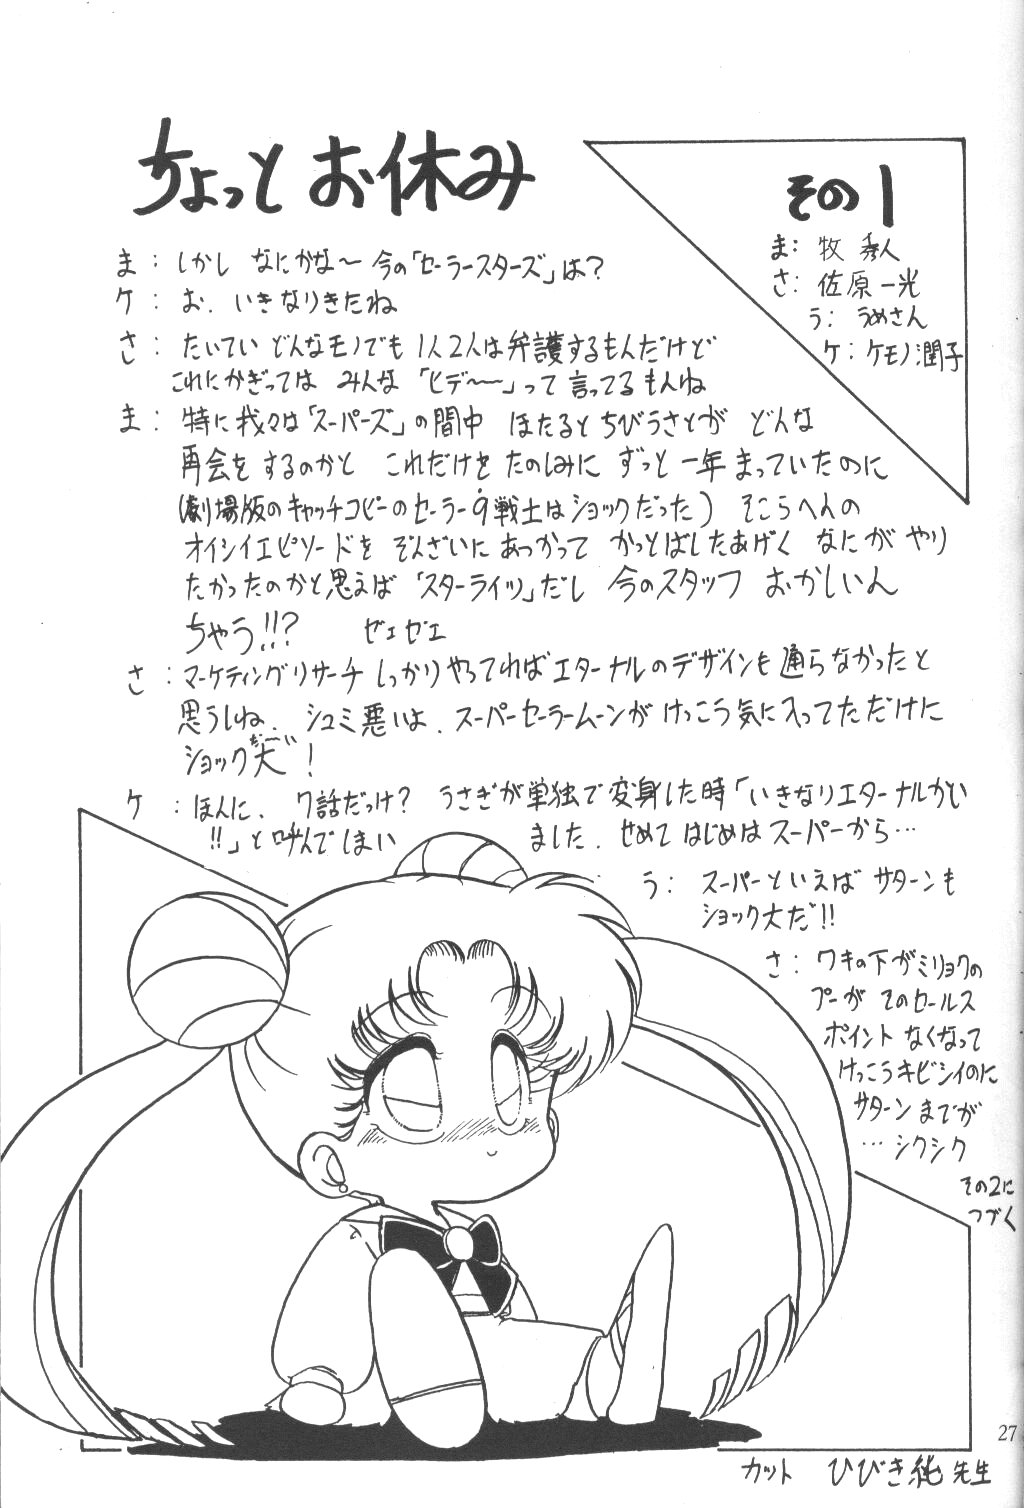 ちょっとお休み
その1
ま: 牧 秀人
さ: 佐原一光
う: うめさん
ケ: ケモノ潤子
ま: しかし なにかな〜 今の「セーラースターズ」は?
ケ: お、いきなりきたね
さ: たいてい どんなモノでも 1人2人は弁護するもんだけど
これにかぎっては みんな「ヒデ〜〜」って 言ってるもんね
ま: 特に我々は「スーパーズ」の間中 ほたるとちびうさとが どんな
再会をするのかと これだけを たのしみに ずっと一年まっていたのに
(劇場版のキャッチコピーのセーラー9戦士はショックだった) そこらへんの
オイシイエピソードを ぞんざいにあつかって かっとばしたあげく なにが やり
たかったのかと思えば「スターライツ」だし 今のスタッフ おかしいん
ちゃう!!? ゼェゼェ
さ: マーケティングリサーチ しっかりやってればエターナルのデザインも通らなかったと
思うしね. シュミ悪いよ. スーパーセーラームーンが けっこう気に入ってただけに
ショック大!
だ〜い
ケ: ほんに、7話だっけ? うさぎが単独で変身した時「いきなりエターナルかい
!!」と 呼んでしまい ました. せめて はじめはスーパーから…
う: スーパーといえば サターンも
ショック大だ!!
さ: ワキの下がミリョクの
プーが そのセールス
ポイント なくなって
けっこうキビシイのに
サターン までが
… シクシク
その2に
つづく
27
カット ひびき純 先生